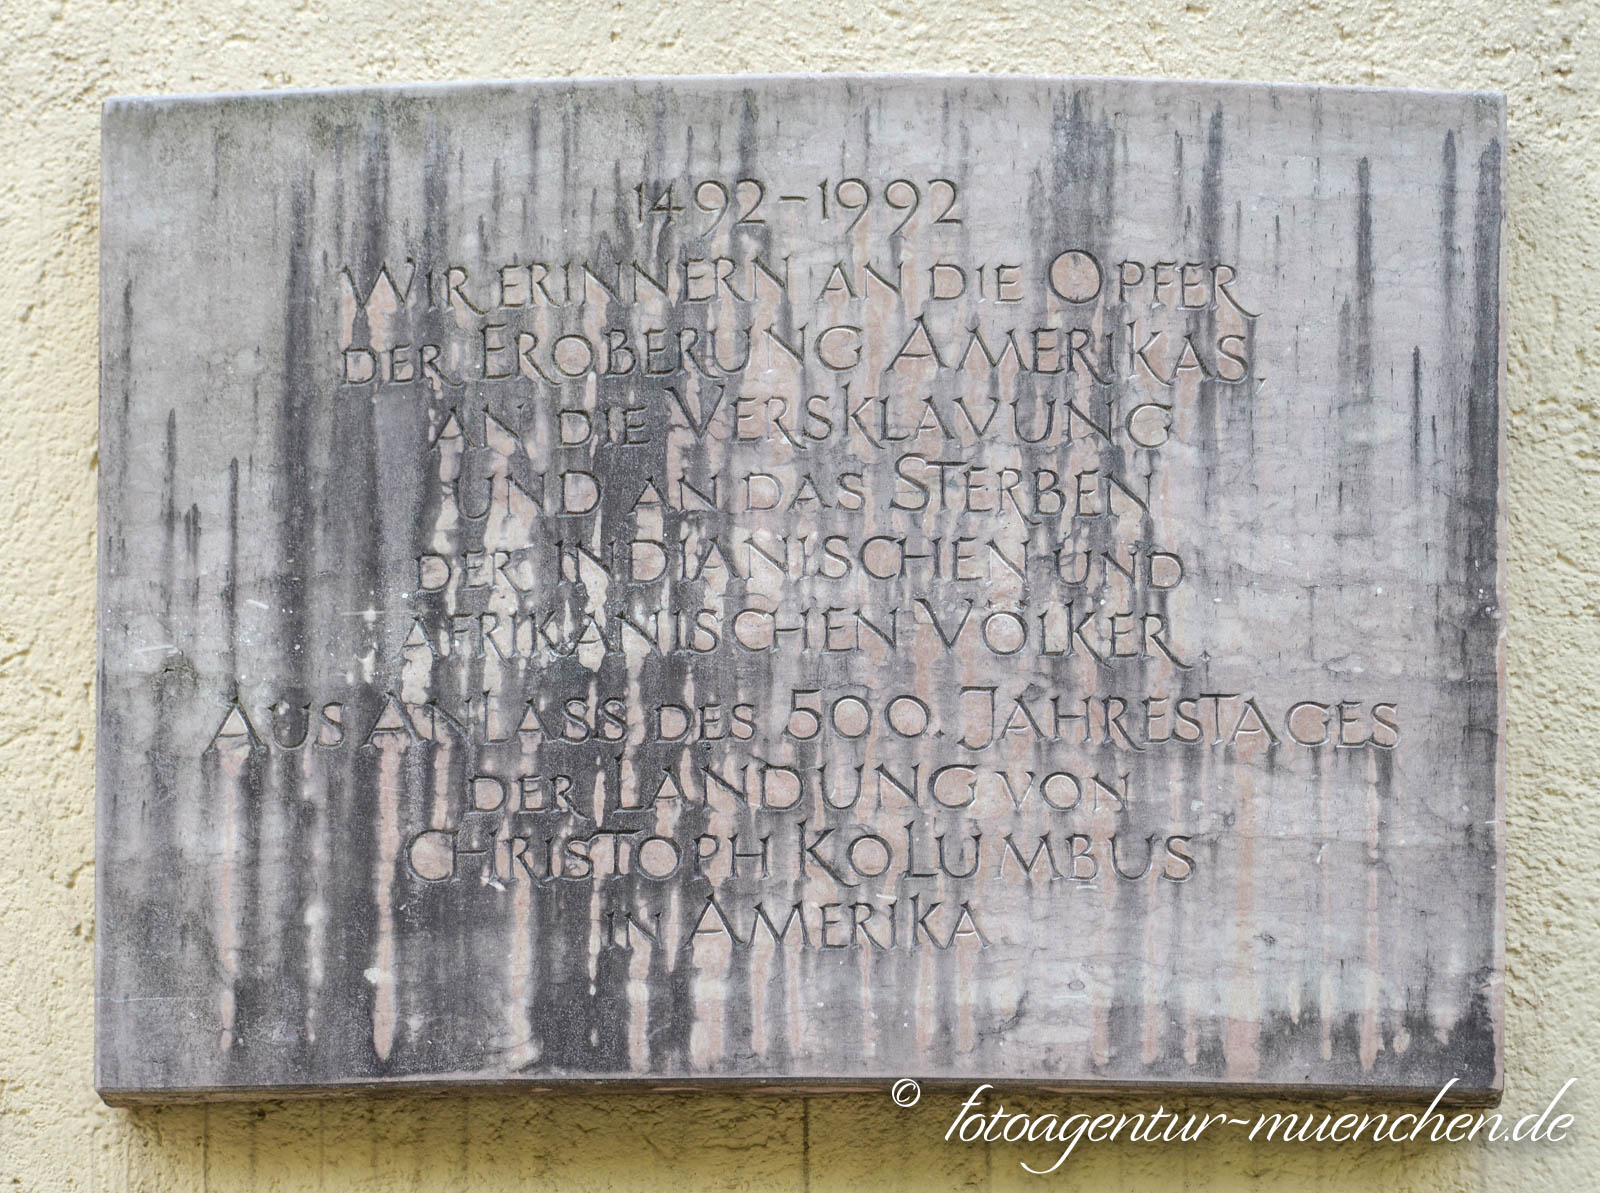 1492–1992
WIR ERINNERN AN DIE OPFER
DER EROBERUNG AMERIKAS,
AN DIE VERSKLAVUNG
UND AN DAS STERBEN
DER INDIANISCHEN UND
AFRIKANISCHEN VÖLKER.
AUS ANLASS DES 500. JAHRESTAGES
DER LANDUNG VON
CHRISTOPH KOLUMBUS
IN AMERIKA
© fotoagentur-muenchen.de